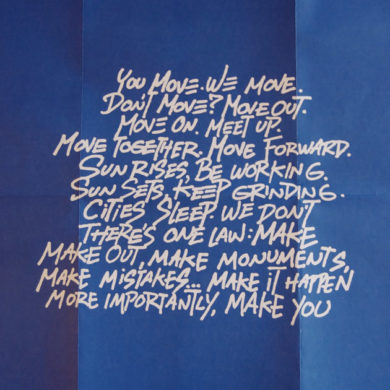 YOU MOVE. WE MOVE.
DON'T MOVE? MOVE OUT.
MOVE ON. MEET UP.
MOVE TOGETHER. MOVE FORWARD.
SUN RISES, BE WORKING.
SUN SETS, KEEP GRINDING.
CITIES SLEEP. WE DON'T
THERE'S ONE LAW: MAKE
MAKE OUT, MAKE MONUMENTS,
MAKE MISTAKES... MAKE IT HAPPEN
MORE IMPORTANTLY, MAKE YOU